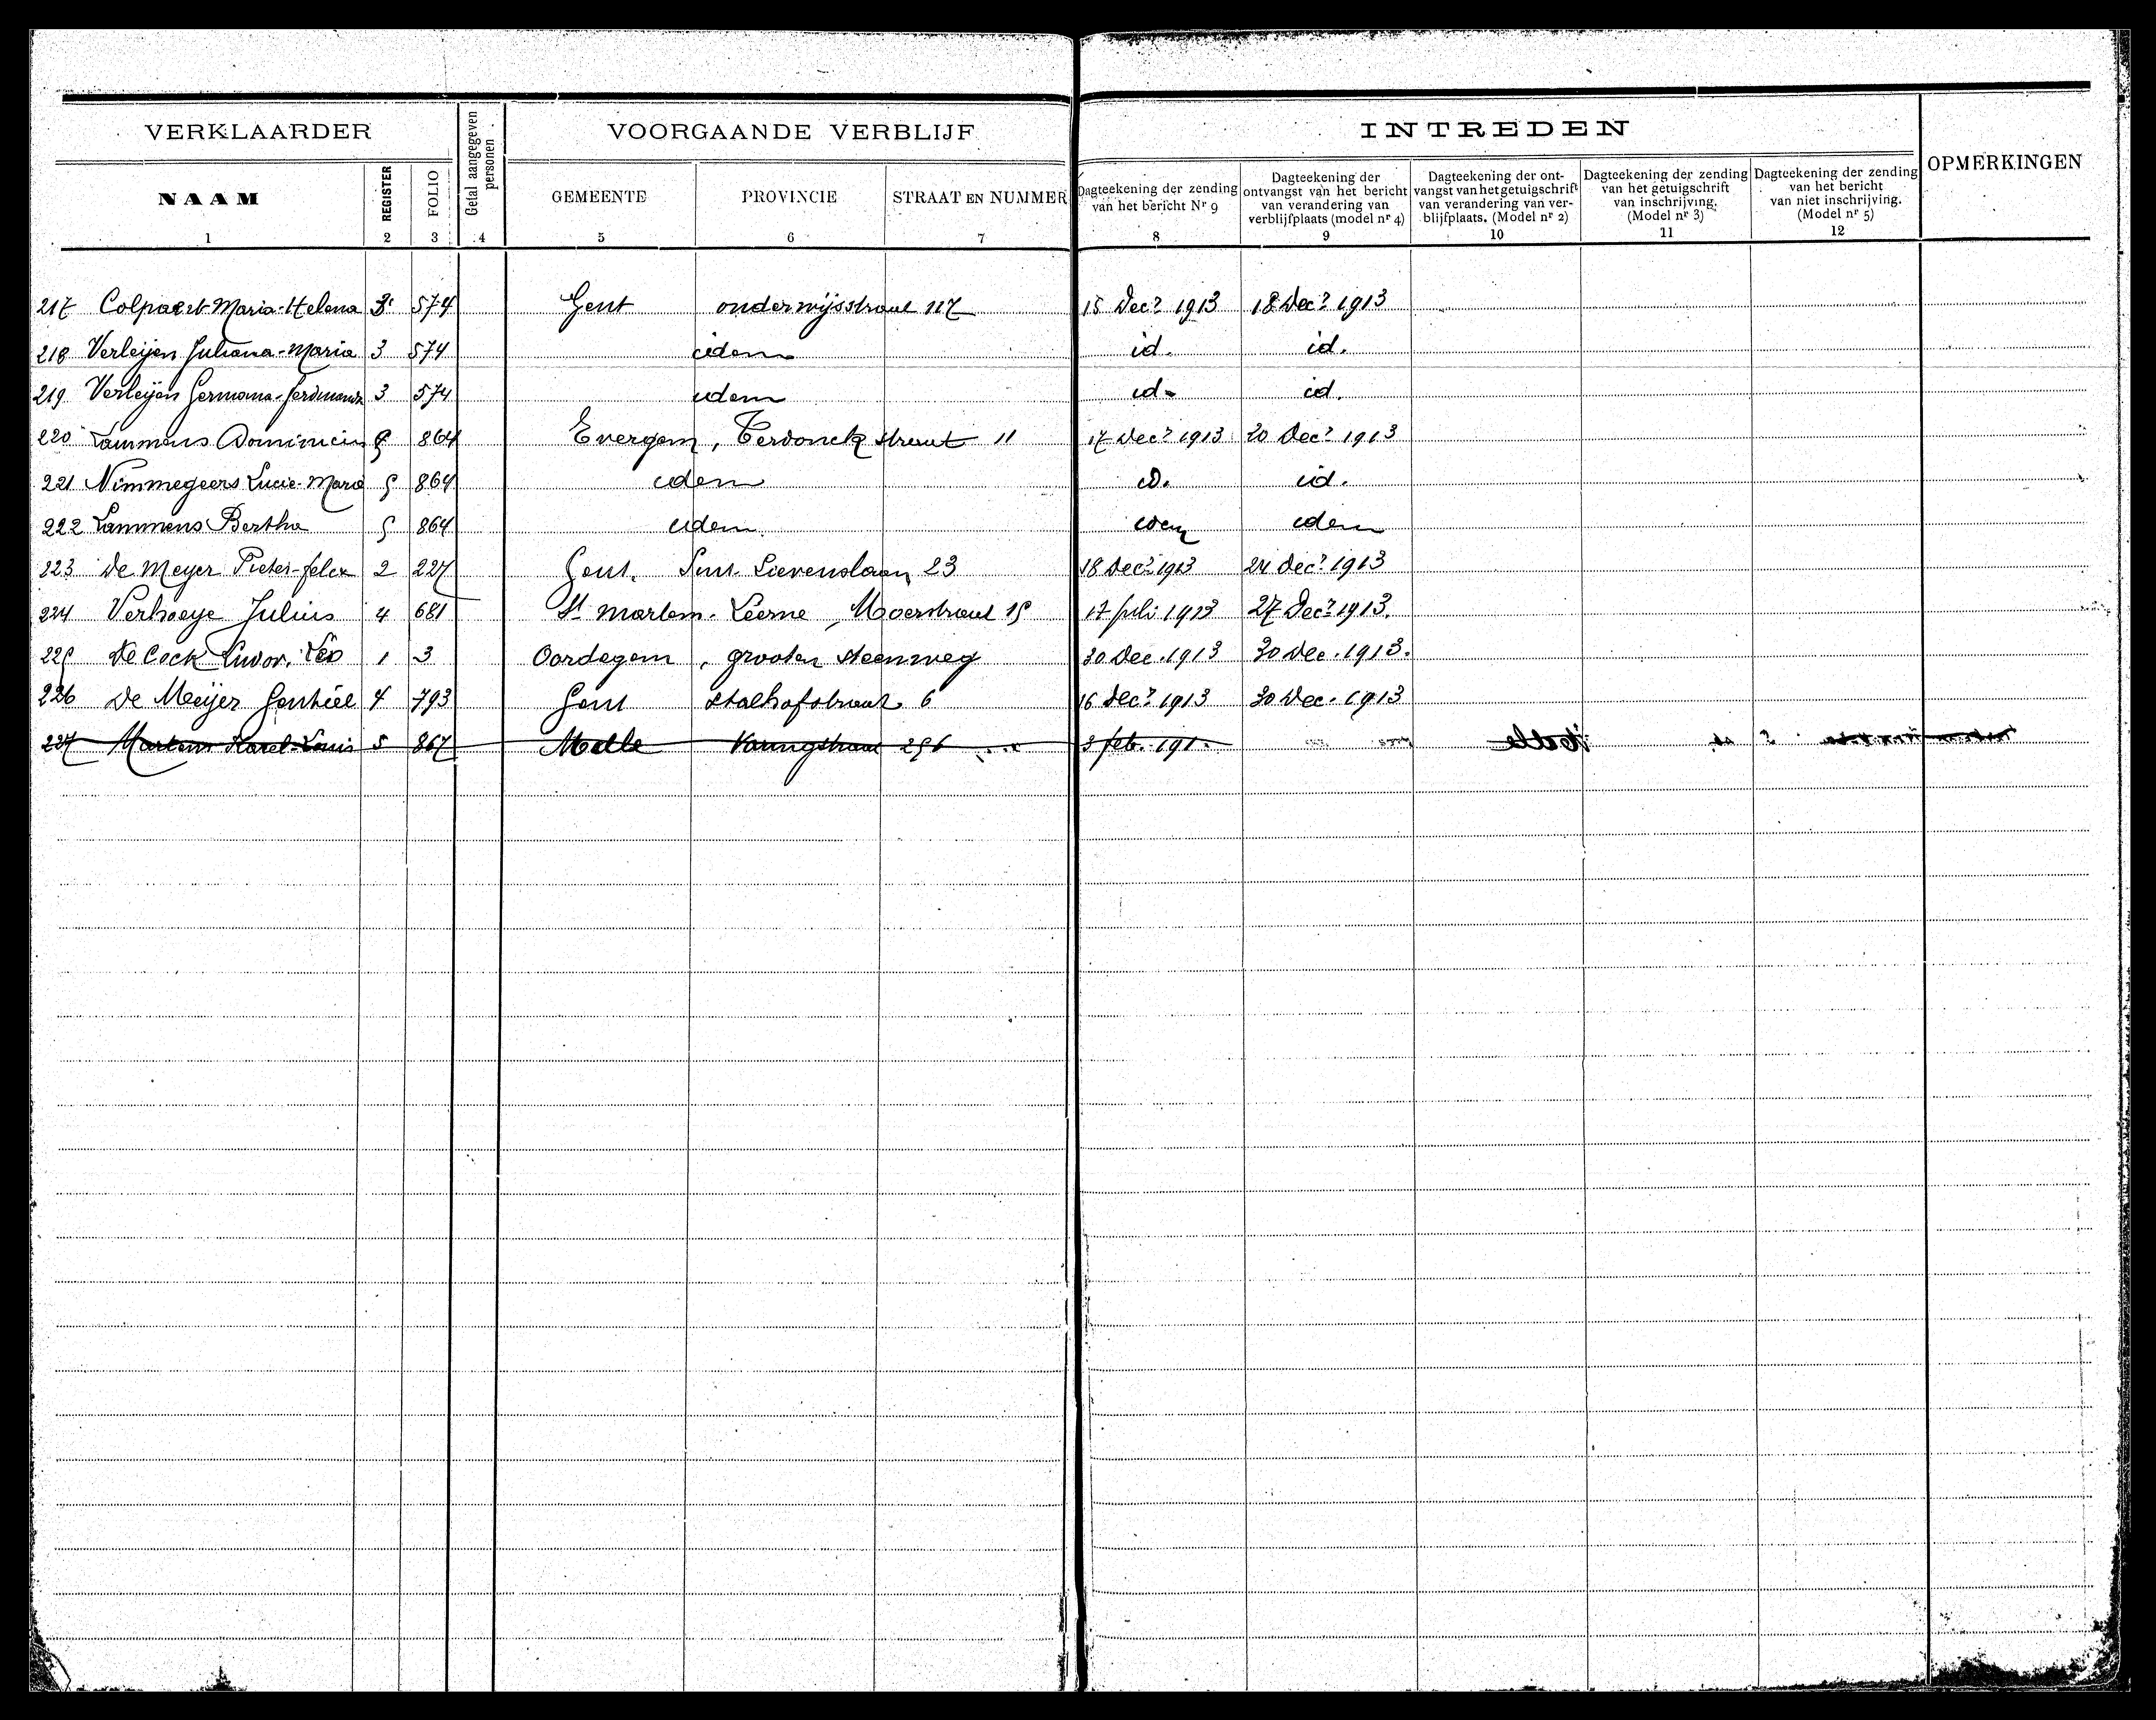 VERKLAARDER
Getal aangegeven personen
VOORGAANDE VERBLIJF
INTREDEN
OPMERKINGEN
NAAM REGISTER FOLIO GEMEENTE PROVINCIE STRAAT EN NUMMER
Dagteekening der zending
van het bericht Nr 9
Dagteekening der
ontvangst van het bericht
van verandering van
verblijfplaats (model nr 4)
Dagteekening der ont-
vangst van het getuigschrift
van verandering van ver-
blijfplaats. (Model nr 2)
Dagteekening der zending
van het getuigschrift
van inschrijving.
(Model nr 3)
Dagteekening der zending
van het bericht
van niet inschrijving.
(Model nr 5)
1 2 3 4 5 6 7 8 9 10 11 12
217 Colpaert Maria-Helena 3 574 Gent onderwijsstraat 117 15 Decr 1913 18 Decr 1913
218 Verleijen Juliana-Maria 3 574 idem id. id.
219 Verleijen Germana 3 574 idem id. id.
220 Lammens Dominicus 5 864 Evergem, Terdonck straat 11 17 Decr 1913 20 Decr 1913
221 Nimmegeers Lucie-Maria 5 864 idem id. id.
222 Lammens Bertha 5 864 idem idem idem
223 De Meyer Pieter-felix 2 227 Gent. Sint Lievenslaan 23 18 Decr 1913 24 decr 1913
224 Verhoeye Julius 4 681 St Martens-Leerne, Moerstraat 15 17 juli 1913 27 Decr 1913.
225 De Cock Livor. Leo 1 3 Oordegem, grooten steenweg 30 Dec. 1913 30 Dec. 1913.
226 De Meijer Gentiel 4 793 Gent Stalhofstraat 6 16 Decr 1913 30 Dec. 1913
227 Martens Karel-Louis 5 867 Melle 296 3 feb. 191